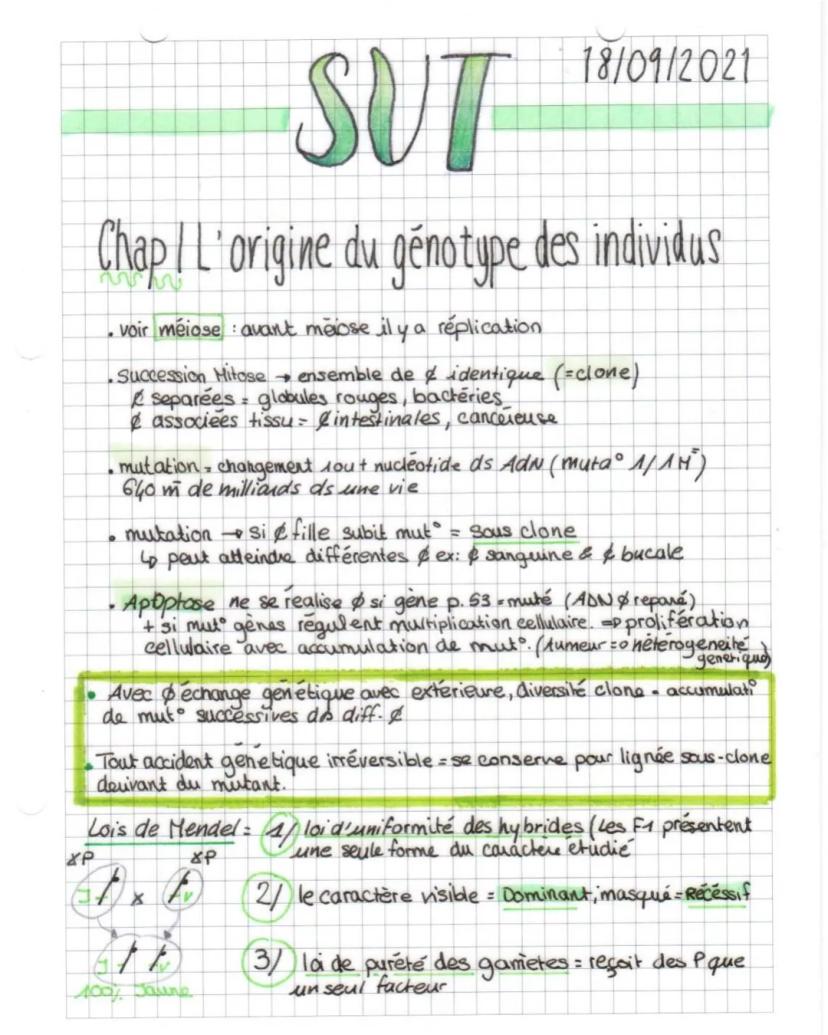 SVT
18/09/2021
Chap 1 L'origine du génotype des individus
• voir méiose : avant méiose il y a réplication
• Succession Mitose → ensemble de ¢ identique (=clone)
¢ separées = globules rouges, bactéries
¢ associées tissu = ¢ intestinales, cancéreuse
• mutation = changement 1 ou + nucléotide ds ADN (muta° 1/1M)
640 m de milliards ds une vie
• mutation → si ¢ fille subit mut° = sous clone
↳ peut atteindre différentes ¢ ex: ¢ sanguine & ¢ bucale
• Apoptose ne se réalise ∅ si gène p.53 = muté (ADN ∅ reparé)
+ si mut° gènes régulent multiplication cellulaire. ⇒ prolifération
cellulaire avec accumulation de mut°. (tumeur ⇒ hétérogeneité
génétique)
• Avec ∅ échange génétique avec extérieure, diversité clone = accumulati°
de mut° successives ds diff. ¢
• Tout accident génétique irréversible = se conserve pour lignée sous-clone
derivant du mutant.
Lois de Mendel = 1/ loi d'uniformité des hybrides (Les F1 présentent
une seule forme du caractère etudié
γP γP
J+ x v
2/ le caractère visible = Dominant, masqué = Récéssif
J+ v
100% Jaune
3/ loi de puréte des gamètes = reçoit des P que
un seul facteur